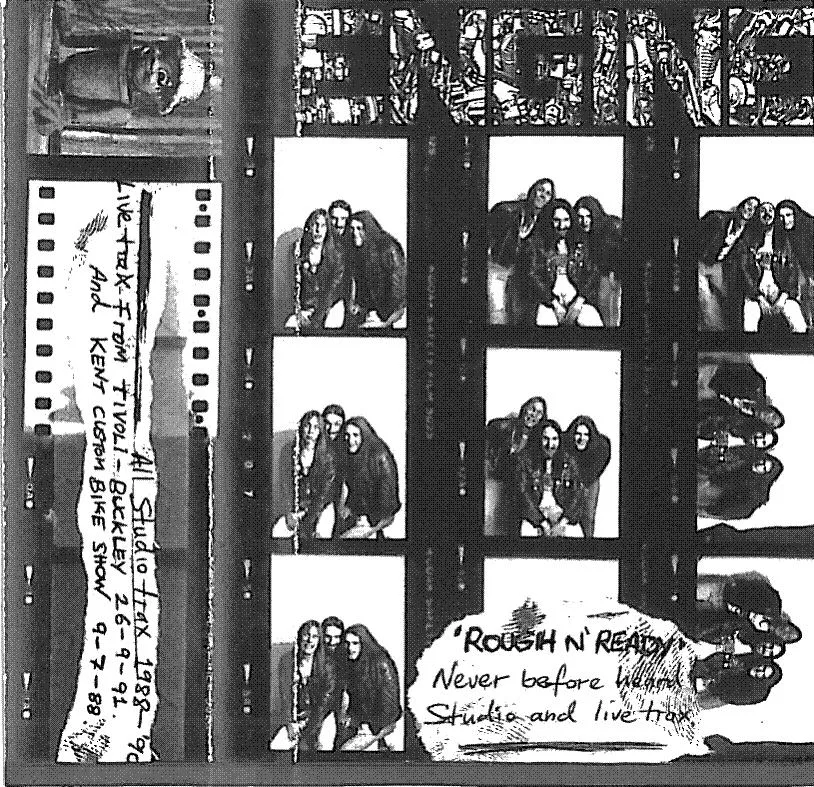 ENGINE
'ROUGH N' READY'
Never before heard
Studio and live trax
All Studio trax 1988-'90
Live trax From TIVOLI-BUCKLEY 26-9-91.
And KENT CUSTOM BIKE SHOW 9-7-88.